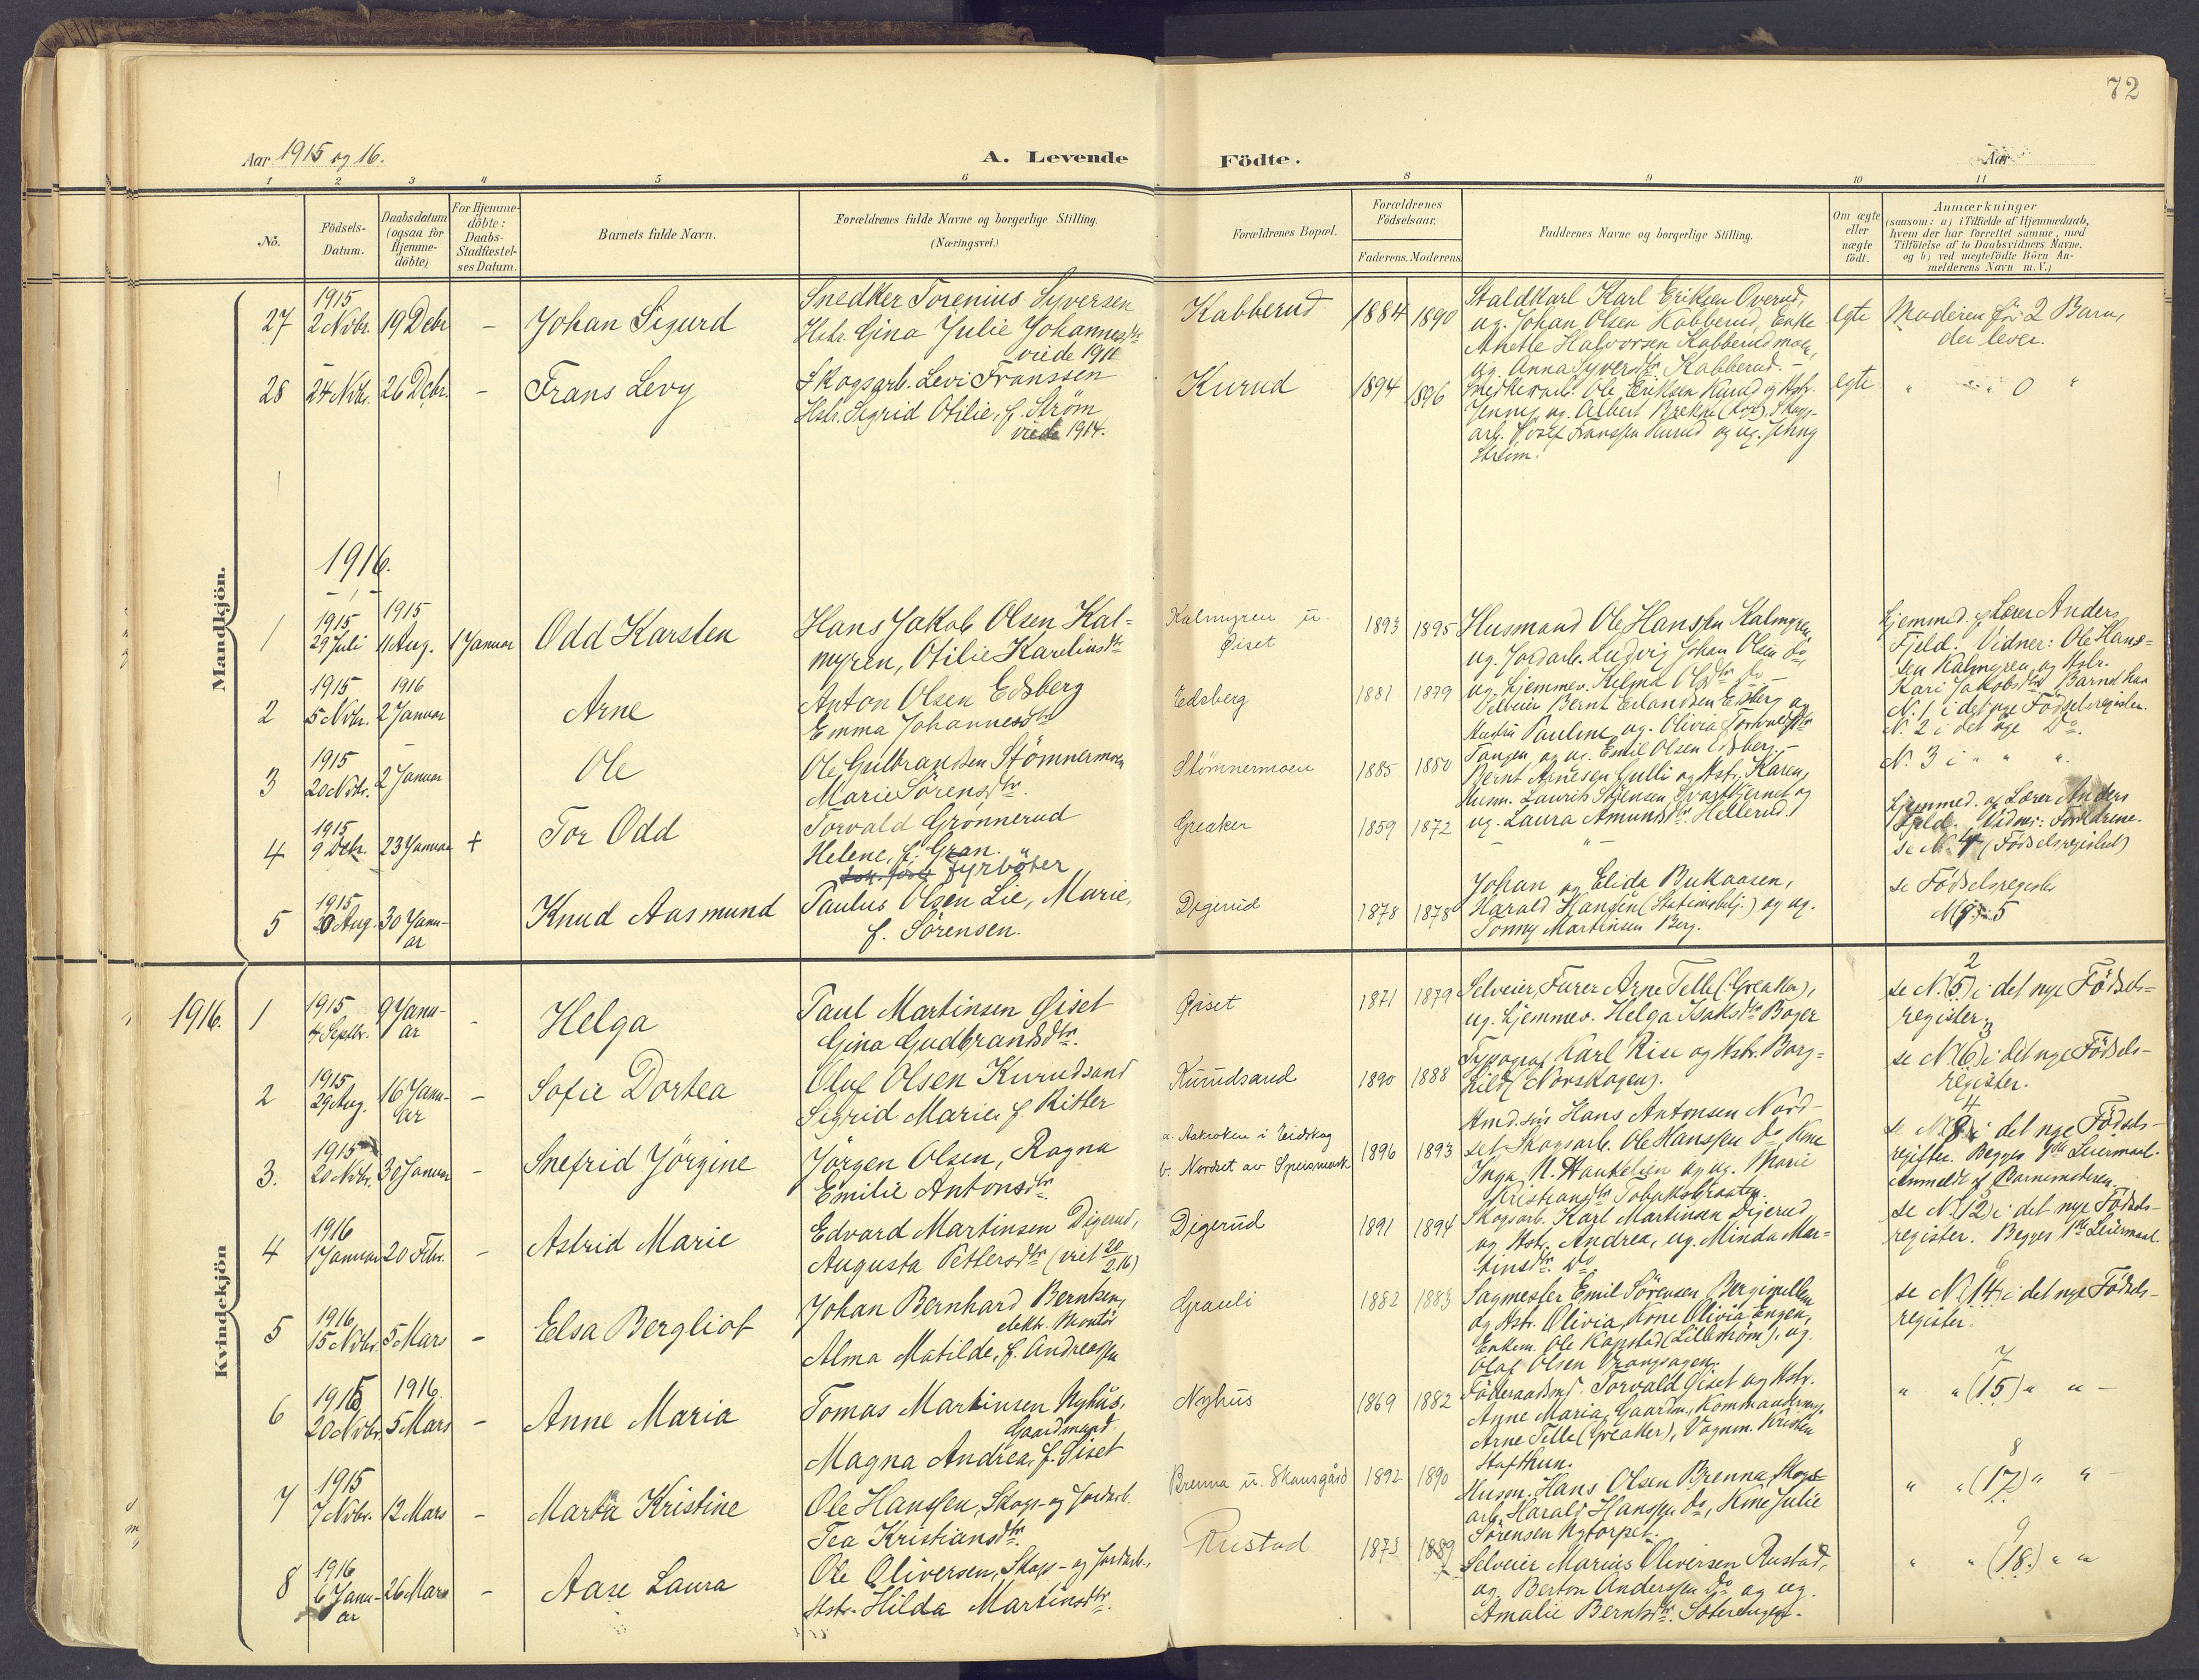 72
Aar 1915 og 16.
A. Levende Födte.
Aar
1 2 3 4 5 6 8 9 10 11
No.
Födsels-Datum.
Daabsdatum (ogsaa for Hjemme-döbte)
For Hjemme-döbte: Daabs-Stadfæstel-ses Datum.
Barnets fulde Navn.
Forældrenes fulde Navne og borgerlige Stilling.
(Næringsvei.)
Forældrenes Bopæl.
Forældrenes Födselsaar.
Faderens. Moderens
Faddernes Navne og borgerlige Stilling.
Om ægte eller uægte födt.
Anmærkninger
(saasom: a) i Tilfælde af Hjemmedaab,
hvem der har forrettet samme, med
Tilföielse af to Daabsvidners Navne.
og b) ved uægtefödte Börn An-
melderens Navn m. V.)
Mandkjön.
27
1915
2 Novbr.
19 Debr
-
Johan Sigurd
Snedker Torenius Syversen
Hstr. Gina Julie Johannesdtr
viede 1911
Kabberud
1884
1890
Staldkarl Karl Eriksen Overud,
ug. Johan Olsen Kabberud, Enke
Anette Halvorsen Kabberudmoen,
ug. Anna Syversdtr Kabberud. -
egte
Moderen før 2 Barn,
der lever.
28
24 Nvbr.
26 Debr.
-
Frans Levy
Skogsarb. Levi Franssen
Hstr. Sigrid Otilie, f. Ström
viede 1914.
Kurud
1894
1896
Snedkerarb. Ole Eriksen Kurud og Hstr.
Jenny, ug. Albert Brekke
arb. Josef Franssen Kurud og ug. Jenny
Ström.
egte
" " 0 "
1916.
1
1915
29 Juli
1915
11 Aug.
1 Januar
Odd Karsten
Hans Jakob Olsen Kal-
myren, Otilie Kareliusdtr
Kalmyren u.
Øiset
1893
1895
Husmand Ole Hanssen Kalmyren,
ug. Jordarb. Ludvig Johan Olsen do,
ug. hjemmev. Helma Olsdtr do -
Hjemmed. af Lærer Anders
Fjeld. Vidner: Ole Hans-
sen Kalmyren og Hstr.
Kari Jakobsdtr. Barnet har
N. 1 i det nye Födselsregister.
2
1915
5 Nvbr.
1916
2 Januar
Arne
Anton Olsen Edsberg
Emma Johannesdtr
Edsberg
1881
1879
Selveier Bernt Erlandsen Edsberg og
Hustru Pauline, ug. Olivia Torvaldsdtr
Tangen og ug. Emil Olsen Edsberg. -
N. 2 i det nye Do.
3
1915
20 Nvbr.
2 Januar
Ole
Ole Gulbrandsen Stömnermoen
Marie Sörensdtr.
Stömnermoen
1885
1880
Bernt Arnesen Gulli og Hstr. Karen,
Husm. Laurits Sørensen Svarttjernet og
ug. Laura Amundsdtr. Hellerud.
N. 3 i " " "
4
1915
9 Debr.
23 Januar
+
Tor Odd
Torvald Grønnerud
Helene, f. Gran. "
Fyrböter
Greaker
1859
1872
- " -
Hjemmed. af Lærer Anders
Fjeld. Vidner: Forældrene.
Se N. 4 (Födselsregistret)
5
1915
20 Aug.
30 Janu-
ar
Knud Aasmund
Paulus Olsen Lie, Marie,
f. Sörensen.
Digerud
1878
1878
Johan og Elida Bukaasen,
Harald Hansen (Stationsbetj.) og ug.
Tonny Martinsen Berg.
se Födselsregister
N. 5
Kvindekjön
1916.
1
1915
4 Septbr.
9 Janu-
ar
-
Helga
Paul Martinsen Øiset
Gina Gudbrandsdtr.
Øiset
1871
1879
Selveier, Furer Arne Telle (Greaker),
ug. hjemmev. Helga Isaksdtr Boger
2
se N. (5) i det nye Födsels-
register.
2
1915
29 Aug.
16 Janu-
ar
-
Sofie Dortea
Oluf Olsen Kurudsand
Sigrid Marie, f. Ritter
Kurudsand
1890
1888
Typograf Karl Rise og Hstr. Borg-
hild (Norskogen).
3
se N. (6) i det nye Födsels-
register.
3.
1915
20 Nvbr.
30 Januar
-
Snefrid Jörgine
Jörgen Olsen, Ragna
Emilie Antonsdtr.
a. Aakroken i Eidskog
b. Nordset av Speismark
1896
1893
Smed.svs Hans Antonsen Nord-
set, Skogsarb. Ole Hanssen do, Kone
Inga N. Haukelien og ug. Marie
Kristiansdtr Tobaksbraaten.
4
se N. 8 i det nye Födsels-
register. Begges 1ste Leiermaal.
Anmeldt af Barnemoderen.
4
1916
1 Januar
20 Febr.
-
Astrid Marie
Edvard Martinsen Digerud,
Augusta Pettersdtr (viet 20/2.16)
Digerud
1891
1894
Skogsarb. Karl Martinsen Digerud
og Hstr. Andrea, ug. Minda Mar-
tinsdtr. Do
5
se N. (12) i det nye Födsels-
register. Begges 1ste Leiermaal.
5
1916
15 Nvbr.
5 Mars
-
Elsa Bergliot
Johan Bernhard Berntsen,
elektr. Montör
Alma Matilde, f. Andreassen
Grauli
1882
1883
Sagmester Emil Sörensen, Bergimellem
og Hstr. Olivia, Kone Olivia Engen,
Enkem. Ole Kapstad (Lilleström), ug.
Olaf Olsen Vrangsagen.
6
se N. (14) i det nye Födsels-
register.
6
1915
20 Nvbr.
1916.
5 Mars
-
Anne Maria
Tomas Martinsen Nyhus,
Gaardmand
Magna Andrea, f. Øiset
Nyhus
1869
1882
Föderaadsmd. Torvald Øiset og Hstr.
Anne Maria,
Arne Telle (Greaker), Vognm. Kristen
Stafthun.
7
" " (15) " " -
7
1915
7 Nvbr.
12 Mars
-
Marta Kristine
Ole Hanssen, Skogs- og Jordarb.
Tea Kristiansdtr.
Brenna u. Skansgård
1892
1890
Husm. Hans Olsen Brenna, Skogs-
arb. Harald Hanssen do, Kone Julie
Sörensen Nytorpet.
8
" " (17) " " -
8
1916
6 Janu-
ar
26 Mars
-
Aase Laura
Ole Oliversen, Skogs- og Jordarb.,
Hstr. Hilda Martinsdtr.
Rustad
1873
1889
Selveier Marius Oliversen Rustad,
ug. Berton Anderssen do og ug.
Amalie Berntsdtr.
9
" " (18.) " "